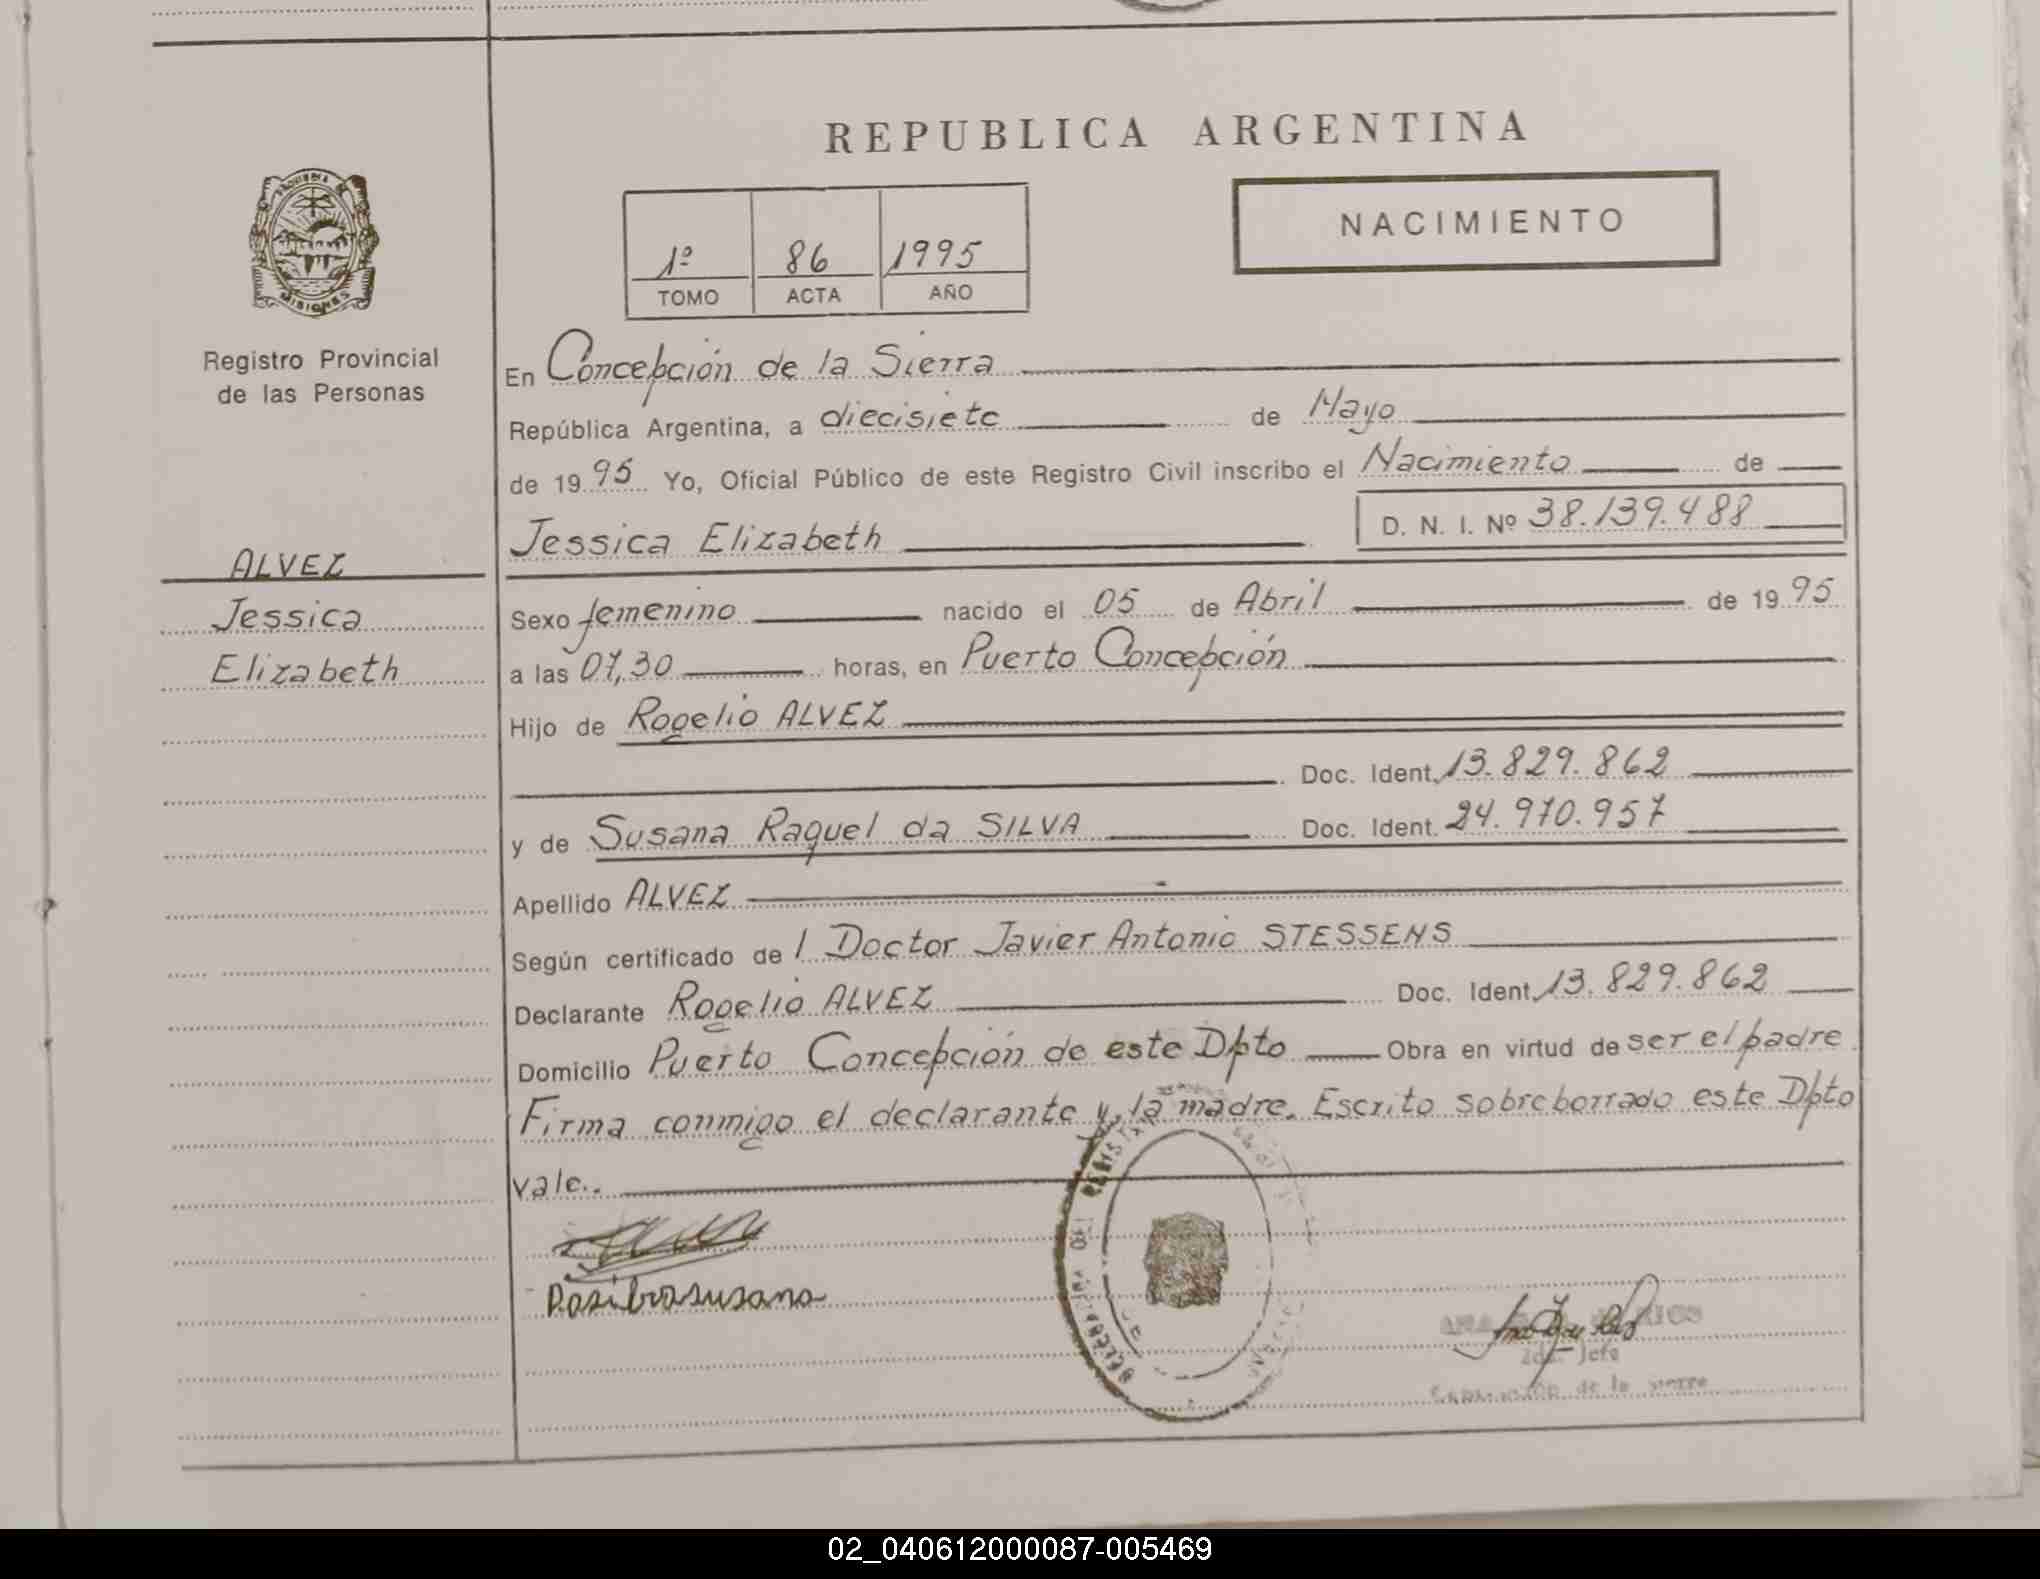 REPUBLICA ARGENTINA
NACIMIENTO
1º 86 1995
TOMO ACTA AÑO
MISIONES
Registro Provincial
de las Personas
ALVEZ
Jessica
Elizabeth
En Concepción de la Sierra
República Argentina, a diecisiete de Mayo
de 1995 Yo, Oficial Público de este Registro Civil inscribo el Nacimiento de
Jessica Elizabeth D. N. I. Nº 38.139.488
Sexo femenino nacido el 05 de Abril de 1995
a las 07,30 horas, en Puerto Concepción
Hijo de Rogelio ALVEZ
Doc. Ident. 13.829.862
y de Susana Raquel da SILVA Doc. Ident. 24.970.957
Apellido ALVEZ
Según certificado de l Doctor Javier Antonio STESSENS
Declarante Rogelio ALVEZ Doc. Ident. 13.829.862
Domicilio Puerto Concepción de este Dpto Obra en virtud de ser el padre
Firma conmigo el declarante y la madre. Escrito sobreborrado este Dpto
vale..
Jefe
de la Sierra
02_040612000087-005469